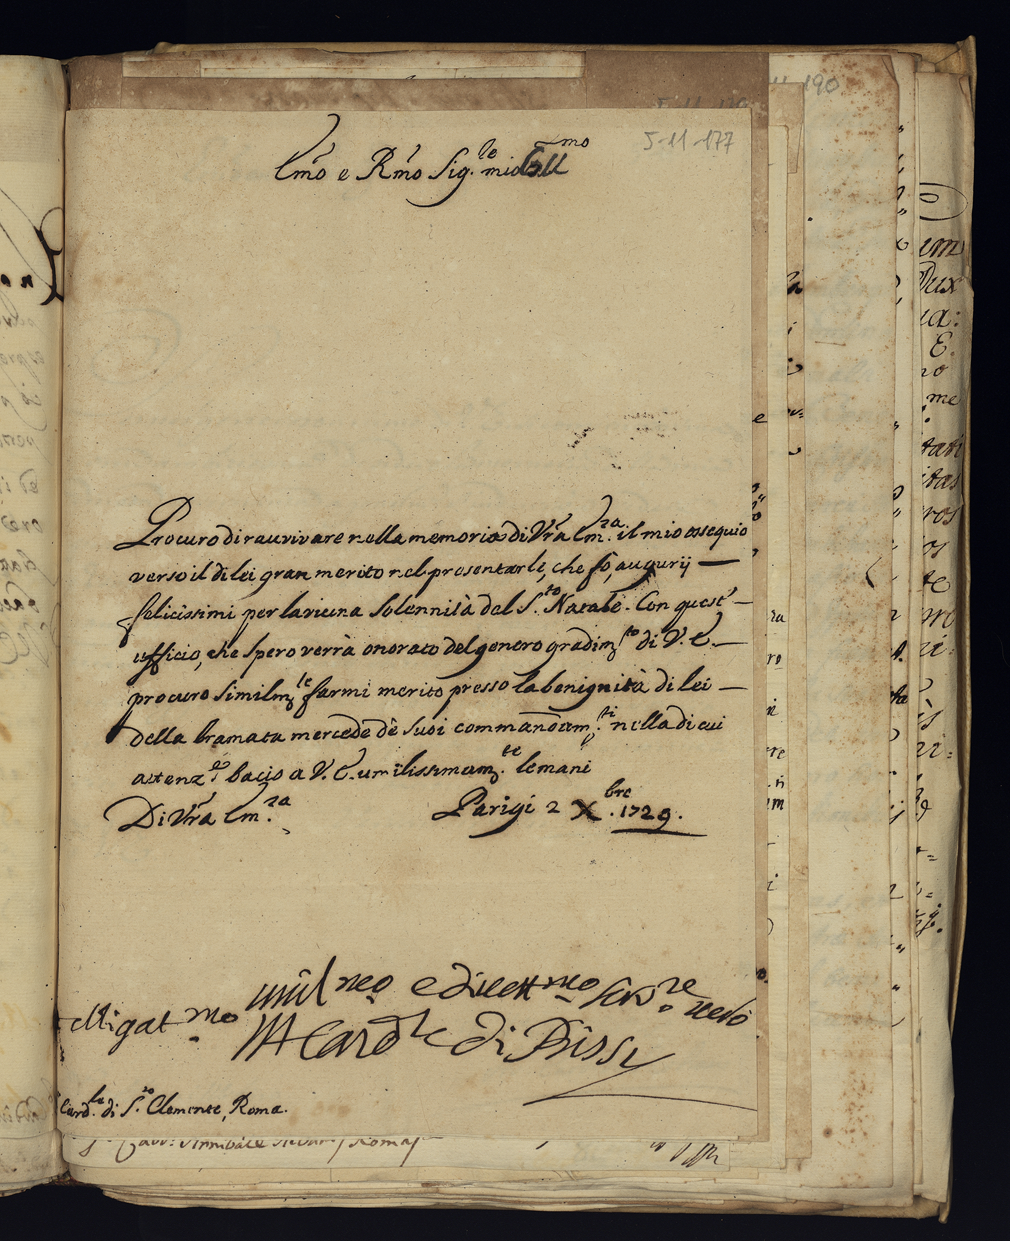 5-11-177
Emõ e Rmõ Sig.re mio Oss.mo
Procuro di ravvivare nella memoria di Vrã Em.za il mio ossequio
verso il di lei gran merito nel presentarle, che fò, augurij —
felicissimi per la vicina Solennità del S.to Natale. Con quest' —
ufficio, che spero verrà onorato del genero gradim.to di V. E. —
procuro similm.te farmi merito presso la benignità di lei —
della bramata mercede dè suoi commandam.ti nella di cui
attenz.e bacio a V. E. umilissimam.te le mani
Di Vrã Em.za
Parigi 2 X.bre 1729.
umil.mo e devott.mo ser.re vero
obligat.mo
Il Card.le di Bissy
Card.le di S. Clemente, Roma.